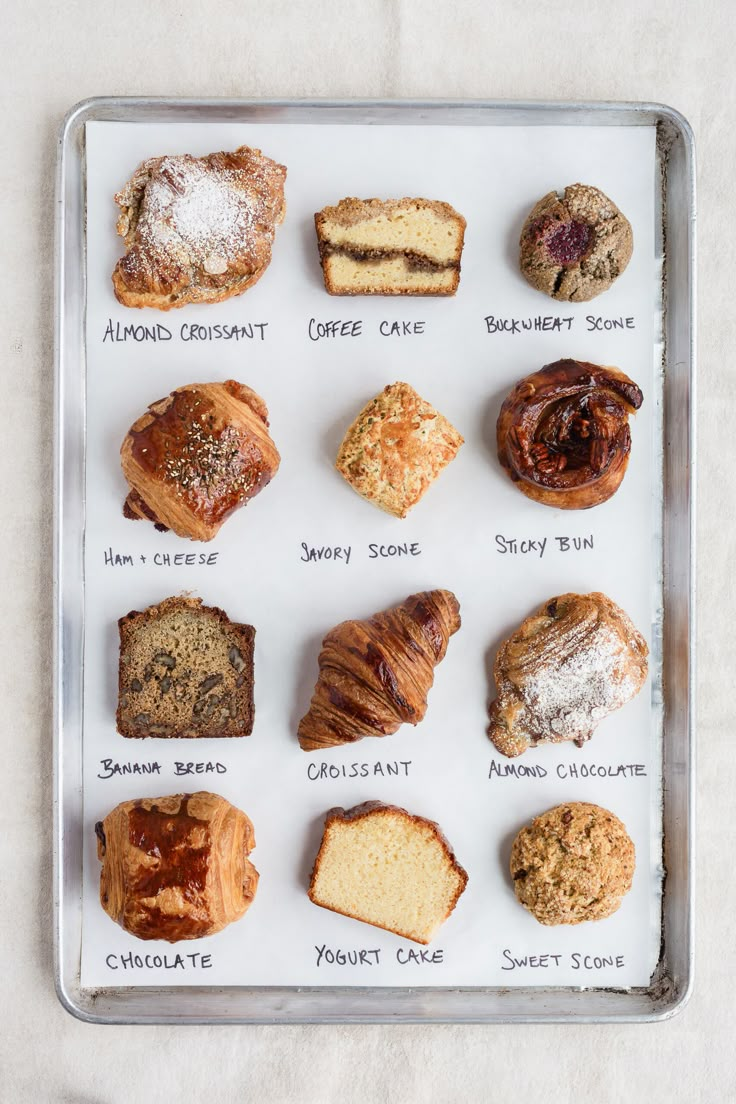 ALMOND CROISSANT
COFFEE CAKE
BUCKWHEAT SCONE
HAM + CHEESE
SAVORY SCONE
STICKY BUN
BANANA BREAD
CROISSANT
ALMOND CHOCOLATE
CHOCOLATE
YOGURT CAKE
SWEET SCONE